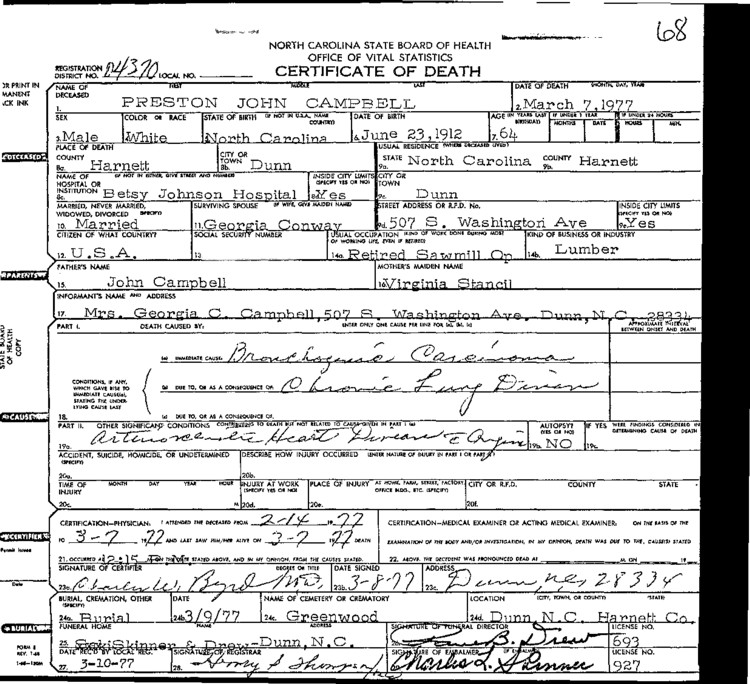 68
NORTH CAROLINA STATE BOARD OF HEALTH
OFFICE OF VITAL STATISTICS
CERTIFICATE OF DEATH
REGISTRATION DISTRICT NO. 04370 LOCAL NO.
OR PRINT IN
MANENT
CK INK
NAME OF DECEASED FIRST MIDDLE LAST DATE OF DEATH (MONTH, DAY, YEAR)
1. PRESTON JOHN CAMPBELL 2. March 7, 1977
SEX COLOR OR RACE STATE OF BIRTH (IF NOT IN U.S.A., NAME COUNTRY) DATE OF BIRTH AGE (IN YEARS LAST BIRTHDAY) IF UNDER 1 YEAR MONTHS DAYS IF UNDER 24 HOURS HOURS MIN.
3. Male White North Carolina 6. June 23, 1912 7. 64
DECEASED
PLACE OF DEATH USUAL RESIDENCE (WHERE DECEASED LIVED)
COUNTY CITY OR TOWN STATE North Carolina COUNTY Harnett
8a. Harnett 8b. Dunn 9a. 9b.
NAME OF HOSPITAL OR INSTITUTION (IF NOT IN EITHER, GIVE STREET AND NUMBER) INSIDE CITY LIMITS (SPECIFY YES OR NO) CITY OR TOWN
8c. Betsy Johnson Hospital 8d. Yes 9c. Dunn
MARRIED, NEVER MARRIED, WIDOWED, DIVORCED (SPECIFY) SURVIVING SPOUSE (IF WIFE, GIVE MAIDEN NAME) STREET ADDRESS OR R.F.D. No. INSIDE CITY LIMITS (SPECIFY YES OR NO)
10. Married 11. Georgia Conway 9d. 507 S. Washington Ave 9e. Yes
CITIZEN OF WHAT COUNTRY? SOCIAL SECURITY NUMBER USUAL OCCUPATION (KIND OF WORK DONE DURING MOST OF WORKING LIFE, EVEN IF RETIRED) KIND OF BUSINESS OR INDUSTRY
12. U.S.A. 13. 14a. Retired Sawmill Op 14b. Lumber
PARENTS
FATHER'S NAME MOTHER'S MAIDEN NAME
15. John Campbell 16. Virginia Stancil
INFORMANT'S NAME AND ADDRESS
17. Mrs. Georgia C. Campbell, 507 S. Washington Ave, Dunn, N.C. 28334
STATE BOARD OF HEALTH COPY
PART I. DEATH CAUSED BY: ENTER ONLY ONE CAUSE PER LINE FOR (a), (b), (c) APPROXIMATE INTERVAL BETWEEN ONSET AND DEATH
(a) IMMEDIATE CAUSE Bronchogenic Carcinoma
CONDITIONS, IF ANY, WHICH GAVE RISE TO IMMEDIATE CAUSE(a), STATING THE UNDERLYING CAUSE LAST
(b) DUE TO, OR AS A CONSEQUENCE OF, Chronic Lung Disease
CAUSE
18. (c) DUE TO, OR AS A CONSEQUENCE OF,
PART II. OTHER SIGNIFICANT CONDITIONS CONTRIBUTING TO DEATH BUT NOT RELATED TO CAUSE GIVEN IN PART I (a) AUTOPSY? (YES OR NO) IF YES WERE FINDINGS CONSIDERED IN DETERMINING CAUSE OF DEATH
19a. Heart Disease 19b. NO 19c.
ACCIDENT, SUICIDE, HOMICIDE, OR UNDETERMINED (SPECIFY) DESCRIBE HOW INJURY OCCURRED (ENTER NATURE OF INJURY IN PART I OR PART II)
20a. 20b.
TIME OF INJURY MONTH DAY YEAR HOUR INJURY AT WORK (SPECIFY YES OR NO) PLACE OF INJURY AT HOME, FARM, STREET, FACTORY, OFFICE BLDG., ETC. (SPECIFY) CITY OR R.F.D. COUNTY STATE
20c. M. 20d. 20e. 20f.
CERTIFIER
CERTIFICATION-PHYSICIAN: I ATTENDED THE DECEASED FROM 2-14 1977 CERTIFICATION-MEDICAL EXAMINER OR ACTING MEDICAL EXAMINER: ON THE BASIS OF THE
TO 3-7 1977 AND LAST SAW HIM/HER ALIVE ON 3-7 1977 DEATH EXAMINATION OF THE BODY AND/OR INVESTIGATION, IN MY OPINION, DEATH WAS DUE TO THE CAUSE(S) STATED
21. OCCURRED AT 2:15 STATED ABOVE, AND IN MY OPINION, FROM THE CAUSES STATED. 22. ABOVE. THE DECEDENT WAS PRONOUNCED DEAD AT M. ON 19
SIGNATURE OF CERTIFIER DEGREE OR TITLE DATE SIGNED ADDRESS
23a. Charles W. Byrd MD. 23b. 3-8-77 23c. Dunn, NC 28334
BURIAL, CREMATION, OTHER (SPECIFY) DATE NAME OF CEMETERY OR CREMATORY LOCATION (CITY, TOWN, OR COUNTY) (STATE)
24a. Burial 24b. 3/9/77 24c. Greenwood 24d. Dunn, N.C. Harnett Co.
BURIAL
FUNERAL HOME NAME ADDRESS SIGNATURE OF FUNERAL DIRECTOR LICENSE NO.
25. Skinner & Drew-Dunn, N.C. B. Drew 693
FORM 8
REV. 1-68
DATE REC'D BY LOCAL REG. SIGNATURE OF REGISTRAR SIGNATURE OF EMBALMER LICENSE NO.
27. 3-10-77 28. Charles L. Skinner 927